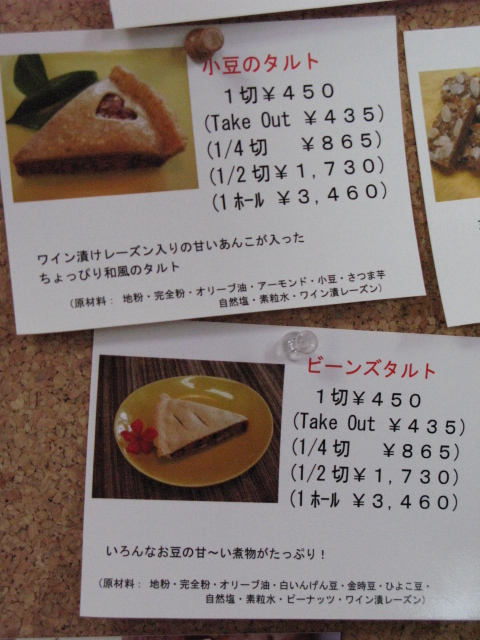 小豆のタルト
１切￥４５０
(Take Out ￥４３５)
(1/4切 ￥８６５)
(1/2切￥１,７３０)
(１ﾎｰﾙ ￥３,４６０)
ワイン漬けレーズン入りの甘いあんこが入った
ちょっぴり和風のタルト
（原材料： 地粉・完全粉・オリーブ油・アーモンド・小豆・さつま芋
自然塩・素粒水・ワイン漬レーズン）
ビーンズタルト
１切￥４５０
(Take Out ￥４３５)
(1/4切 ￥８６５)
(1/2切￥１,７３０)
(１ﾎｰﾙ ￥３,４６０)
いろんなお豆の甘～い煮物がたっぷり！
（原材料： 地粉・完全粉・オリーブ油・白いんげん豆・金時豆・ひよこ豆・
自然塩・素粒水・ピーナッツ・ワイン漬レーズン）